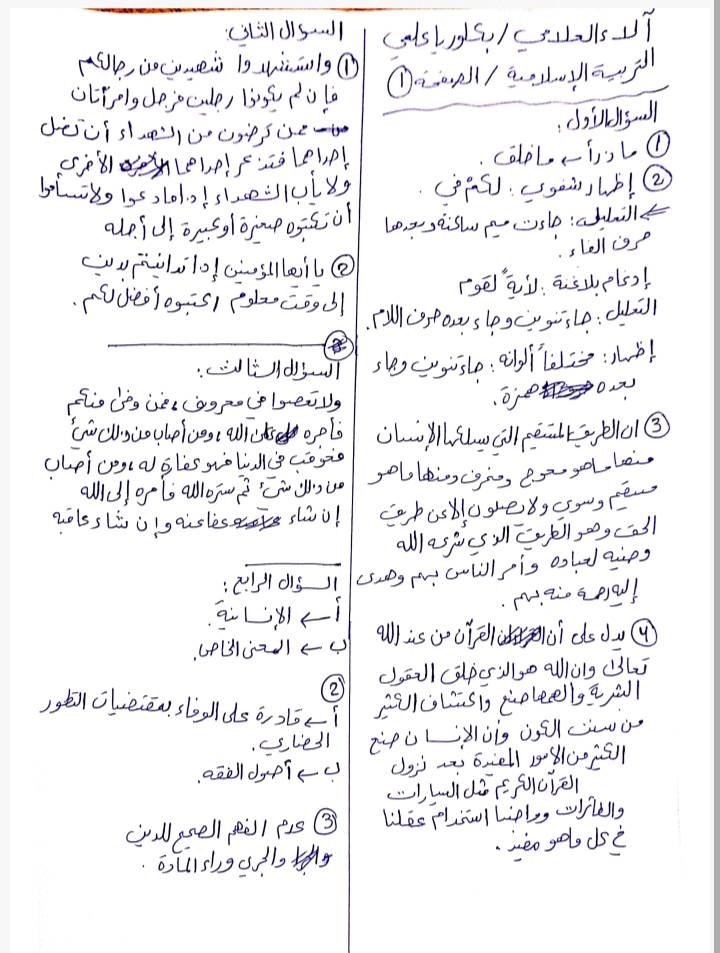 آلاء العلامي / بكلوريا علمي
التربية الإسلامية / الصفحة ①
السؤال الأول:
① ماذرأ ← ما خلق.
② إظهار شفوي: لكم في.
← التعليل: جاءت ميم ساكنة وبعدها
حرف الفاء.
إدغام بلاغنة: لأيةً لقوم
التعليل: جاء تنوين وجاء بعده حرف اللام.
إظهار: مختلفاً ألوانه: جاء تنوين وجاء
بعده همزة.
③ ان الطريق المستقيم التي يسلكها الإنسان
منها ما هو معوج ومنحرف ومنها ما هو
مستقيم وسوي ولا يصلون إلا عن طريق
الحق وهو الطريق الذي شرعه الله
وضيه لعباده وأمر الناس بهم وهدى
إليه رحمة منه بهم.
④ يدل على أن القرآن من عند الله
تعالى وان الله هو الذي خلق العقول
البشرية والهمها صنع واكتشاف الكثير
من سنن الكون وان الإنسان صنع
الكثير من الأمور المفيدة بعد نزول
القرآن الكريم مثل السيارات
والطائرات وواجبنا استخدام عقلنا
في كل ما هو مفيد.
السؤال الثاني:
① واستشهدوا شهيدين من رجالكم
فإن لم يكونوا رجلين فرجل وامرأتان
ممن ترضون من الشهداء أن تضل
إحداهما فتذكر إحداهما الأخرى
ولا يأب الشهداء إذا ما دعوا ولا تسأموا
أن تكتبوه صغيرة أو كبيرة إلى أجله
② يا أيها المؤمنين إذا تداينتم بدين
إلى وقت معلوم اكتبوه أفضل لكم.
السؤال الثالث:
ولا تعصوا في معروف، فمن وفى منكم
فأجره على الله، ومن أصاب من ذلك شئ
فعوقب في الدنيا فهو كفارة له، ومن أصاب
من ذلك شئ ثم ستره الله فأمره إلى الله
إن شاء عفا عنه وإن شاء عاقبه
السؤال الرابع:
أ ← الإنسانية.
ب ← المعنى الخاص.
②
أ ← قادرة على الوفاء بمقتضيات التطور
الحضاري.
ب ← أصول الفقه.
③ عدم الفهم الصحيح للدين
والجري وراء المادة.